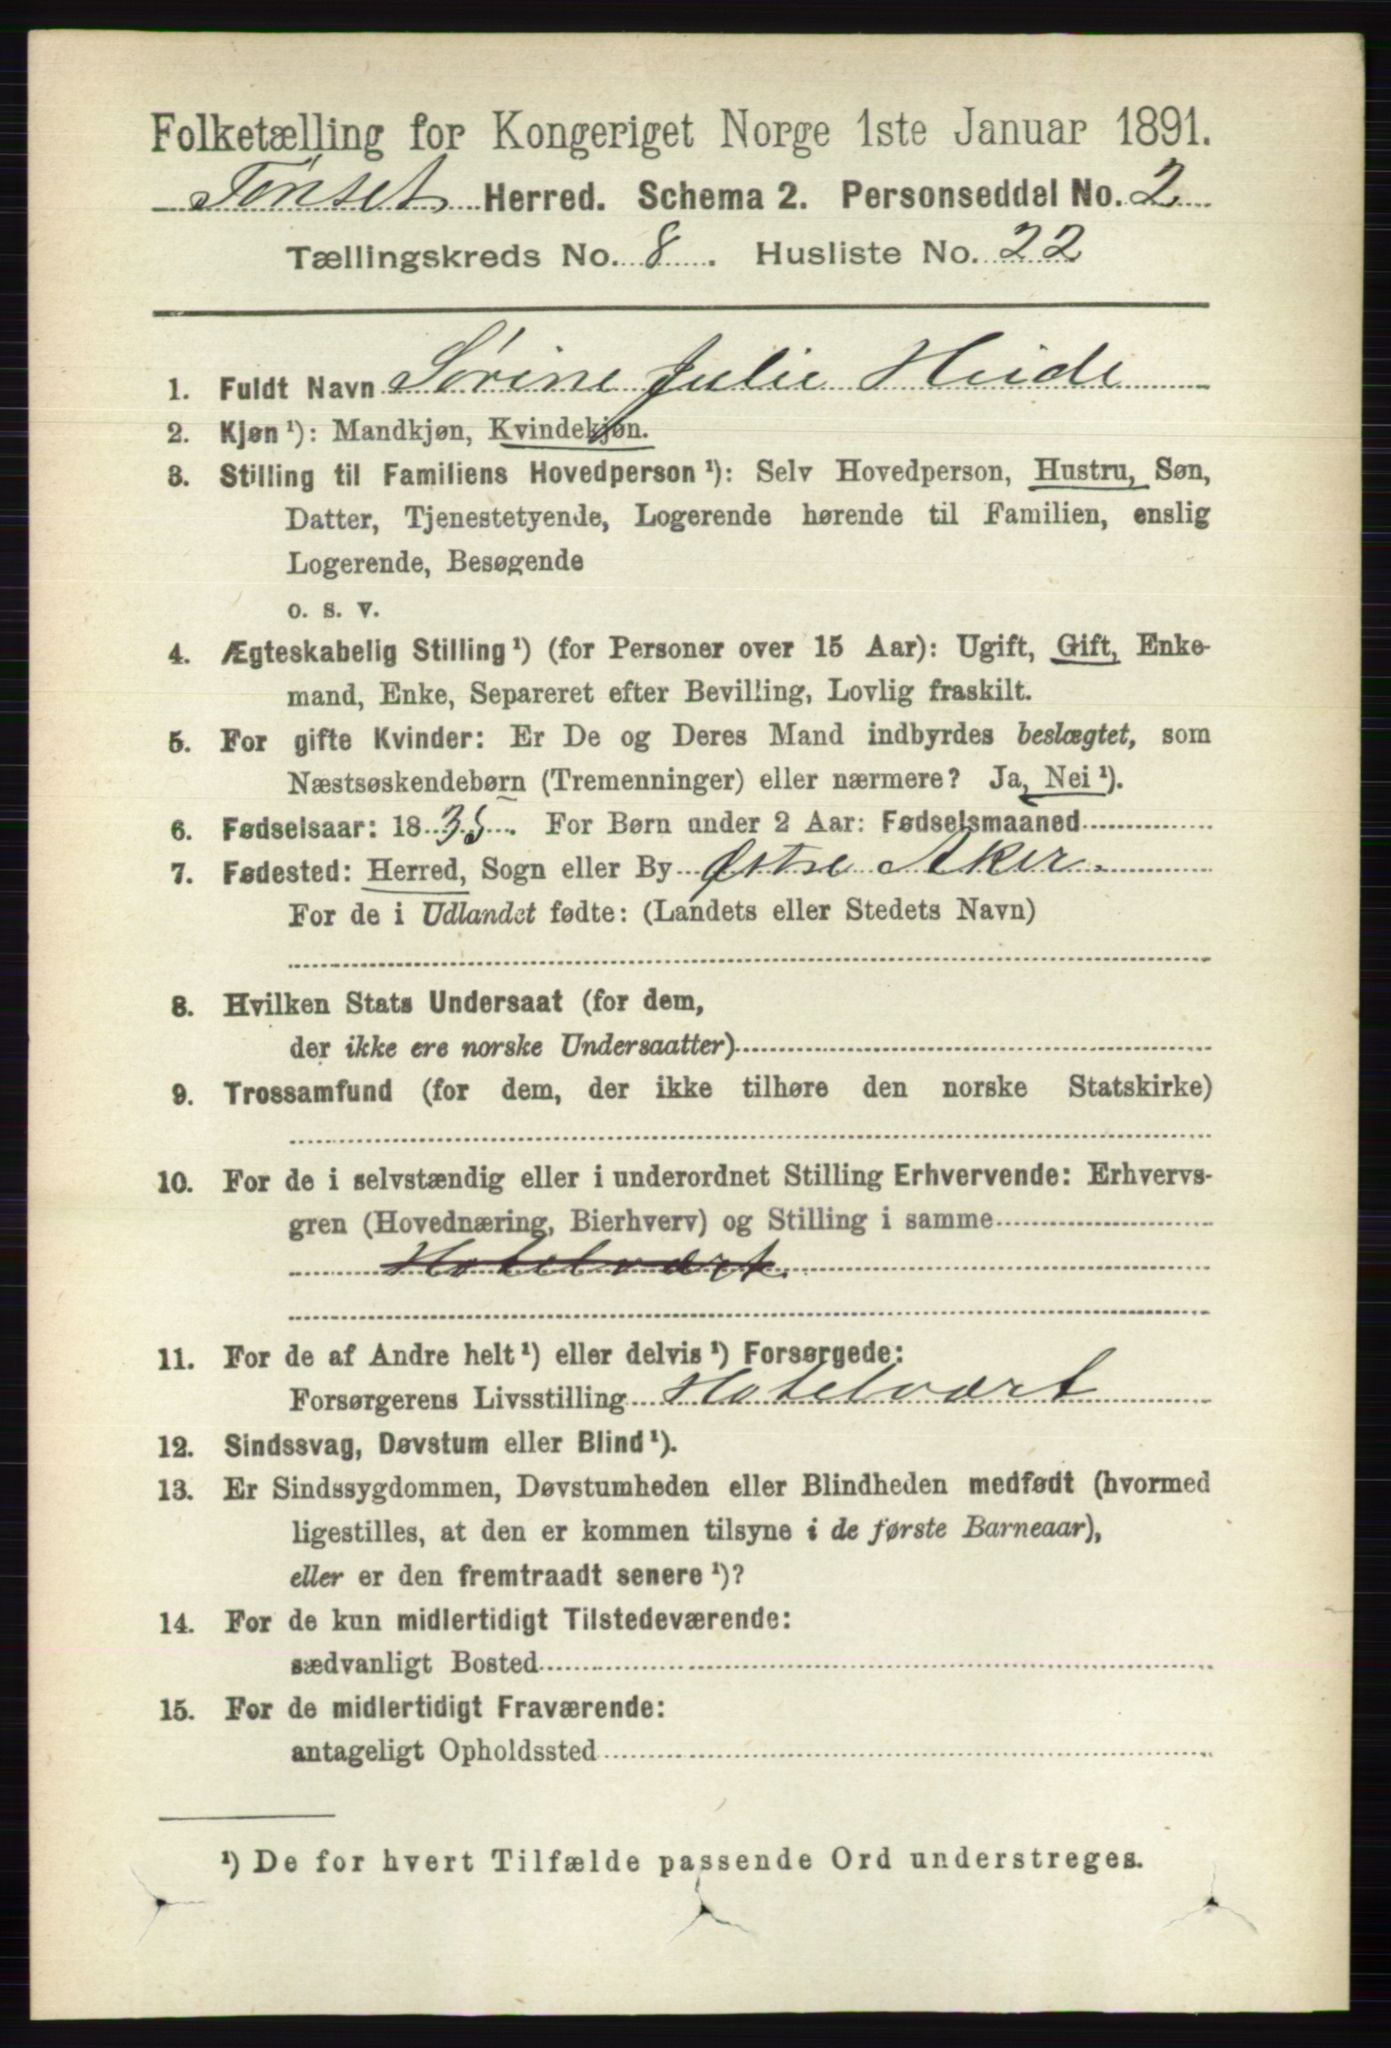 Folketælling for Kongeriget Norge 1ste Januar 1891.
Tønset Herred. Schema 2. Personseddel No. 2
Tællingskreds No. 8. Husliste No. 22
1. Fuldt Navn Sørine Julie Heide
2. Kjøn¹): Mandkjøn, Kvindekjøn.
3. Stilling til Familiens Hovedperson¹): Selv Hovedperson, Hustru, Søn,
Datter, Tjenestetyende, Logerende hørende til Familien, enslig
Logerende, Besøgende
o. s. v.
4. Ægteskabelig Stilling¹) (for Personer over 15 Aar): Ugift, Gift, Enke-
mand, Enke, Separeret efter Bevilling, Lovlig fraskilt.
5. For gifte Kvinder: Er De og Deres Mand indbyrdes beslægtet, som
Næstsøskendebørn (Tremenninger) eller nærmere? Ja, Nei¹).
6. Fødselsaar: 1835. For Børn under 2 Aar: Fødselsmaaned
7. Fødested: Herred, Sogn eller By Østre Aker.
For de i Udlandet fødte: (Landets eller Stedets Navn)
8. Hvilken Stats Undersaat (for dem,
der ikke ere norske Undersaatter)
9. Trossamfund (for dem, der ikke tilhøre den norske Statskirke)
10. For de i selvstændig eller i underordnet Stilling Erhvervende: Erhvervs-
gren (Hovednæring, Bierhverv) og Stilling i samme
Hotelvært.
11. For de af Andre helt¹) eller delvis¹) Forsørgede:
Forsørgerens Livsstilling Hotelvært
12. Sindssvag, Døvstum eller Blind¹).
13. Er Sindssygdommen, Døvstumheden eller Blindheden medfødt (hvormed
ligestilles, at den er kommen tilsyne i de første Barneaar),
eller er den fremtraadt senere¹)?
14. For de kun midlertidigt Tilstedeværende:
sædvanligt Bosted
15. For de midlertidigt Fraværende:
antageligt Opholdssted
¹) De for hvert Tilfælde passende Ord understreges.